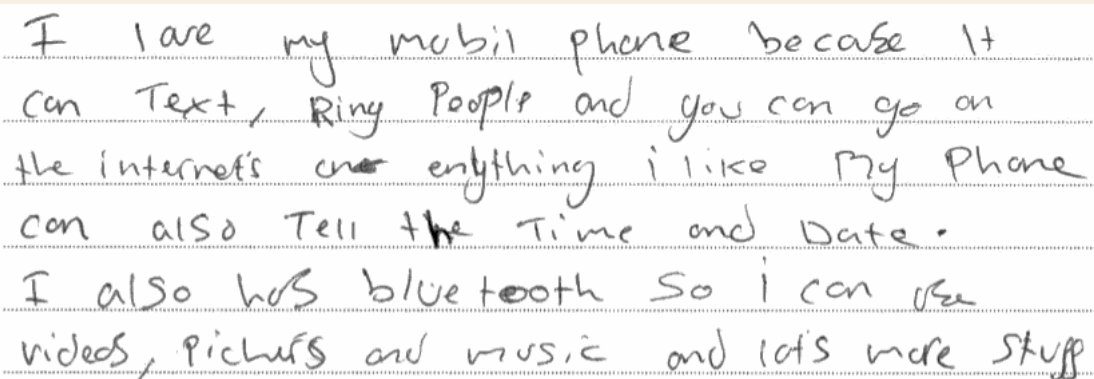 I love my mobil phone becaSe It
can Text, Ring People and you can go on
the internet's and enything i like My Phone
can also Tell the Time and Date.
I also has bluetooth So i can use
videos, Pichers and music and lots more Stuff